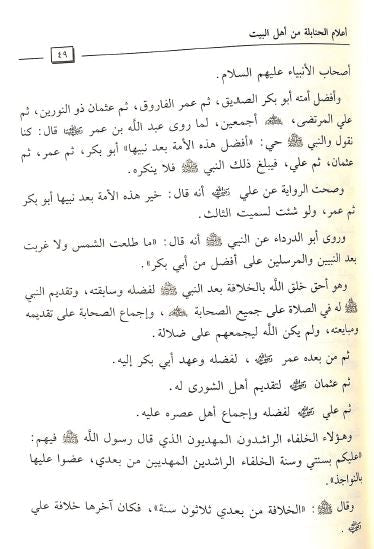 أعلام الحنابلة من أهل البيت
٤٩
أصحاب الأنبياء عليهم السلام.
وأفضل أمته أبو بكر الصديق، ثم عمر الفاروق، ثم عثمان ذو النورين، ثم
علي المرتضى، ﷺ أجمعين، لما روى عبد الله بن عمر قال: كنا
نقول والنبي ﷺ حي: «أفضل هذه الأمة بعد نبيها» أبو بكر، ثم عمر، ثم
عثمان، ثم علي، فيبلغ ذلك النبي ﷺ فلا ينكره.
وصحت الرواية عن علي أنه قال: خير هذه الأمة بعد نبيها أبو بكر
ثم عمر، ولو شئت لسميت الثالث.
وروى أبو الدرداء عن النبي ﷺ أنه قال: «ما طلعت الشمس ولا غربت
بعد النبيين والمرسلين على أفضل من أبي بكر».
وهو أحق خلق الله بالخلافة بعد النبي ﷺ لفضله وسابقته، وتقديم النبي
ﷺ له في الصلاة على جميع الصحابة ، وإجماع الصحابة على تقديمه
ومبايعته، ولم يكن الله ليجمعهم على ضلالة.
ثم من بعده عمر ، لفضله وعهد أبي بكر إليه.
ثم عثمان لتقديم أهل الشورى له.
ثم علي لفضله وإجماع أهل عصره عليه.
وهؤلاء الخلفاء الراشدون المهديون الذي قال رسول الله ﷺ فيهم:
«عليكم بسنتي وسنة الخلفاء الراشدين المهديين من بعدي، عضوا عليها
بالنواجذ».
وقال ﷺ: «الخلافة من بعدي ثلاثون سنة»، فكان آخرها خلافة علي
.